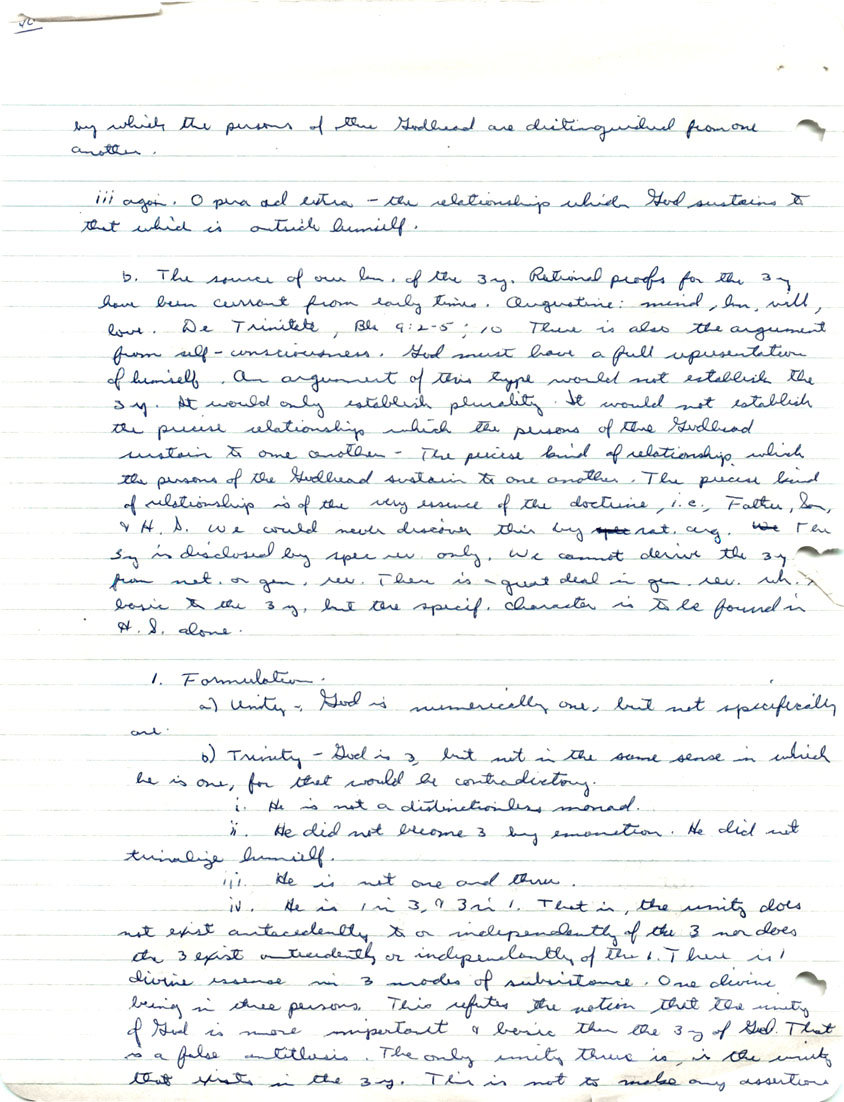 by which the persons of the Godhead are distinguished from one
another.
iii again. Opera ad extra - the relationship which God sustains to
that which is outside himself.
b. The source of our kn. of the 3y. Rational proofs for the 3y
have been current from early times. Augustine: mind, kn, will,
love. De Trinitate, Bk 9:2-5; 10 There is also the argument
from self-consciousness. God must have a full representation
of himself. An argument of this type would not establish the
3y. It would only establish plurality. It would not establish
the precise relationship which the persons of the Godhead
sustain to one another - The precise kind of relationship which
the persons of the Godhead sustain to one another. The precise kind
of relationship is of the very essence of the doctrine, i.e., Father, Son,
& H. S. We would never discover this by spec nat. arg. We The
3y is disclosed by spec rev. only. We cannot derive the 3y
from nat. or gen. rev. There is a great deal in gen. rev. wh. is
basic to the 3y, but the specif. character is to be found in
H. S. alone.
1. Formulation.
a) Unity - God is numerically one, but not specifically
one.
b) Trinity - God is 3, but not in the same sense in which
he is one, for that would be contradictory.
i. He is not a distinctionless monad.
ii. He did not become 3 by emanation. He did not
trinalize himself.
iii. He is not one and three.
iv. He is 1 in 3, & 3 in 1. That is, the unity does
not exist antecedently to or independently of the 3 nor does
the 3 exist antecedently or independently of the 1. There is 1
divine essence in 3 modes of subsistance. One divine
being in three persons. This refutes the notion that the unity
of God is more important & basic than the 3y of God. That
is a false antithesis. The only unity there is, is the unity
that exists in the 3y. This is not to make any assertions